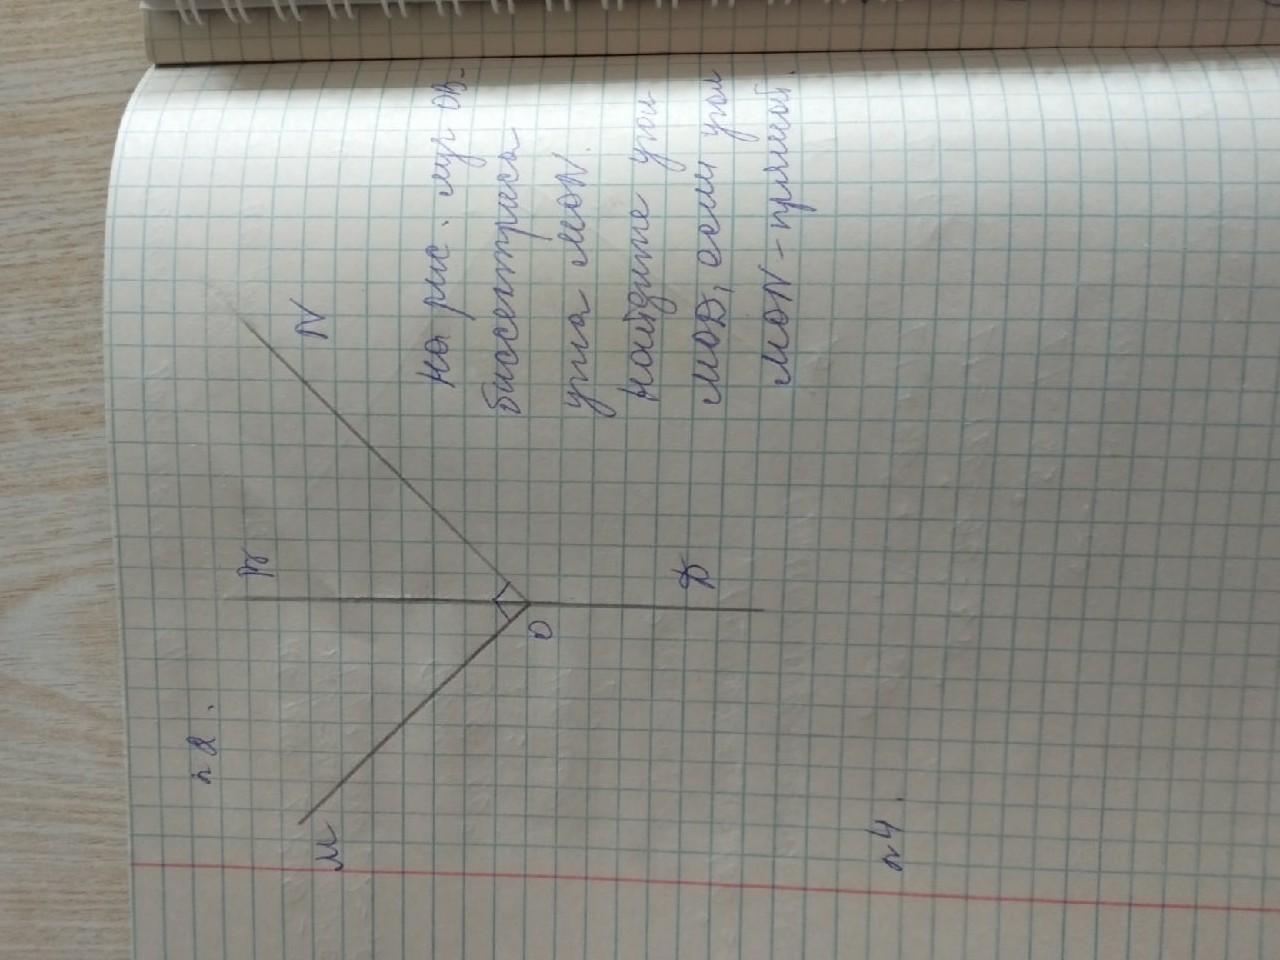 n 2.
B
N
M
O
D
На рис. луч ОВ-
биссектриса
угла MON.
Найдите угол
МОD, если угол
MON - прямой.
n 4.